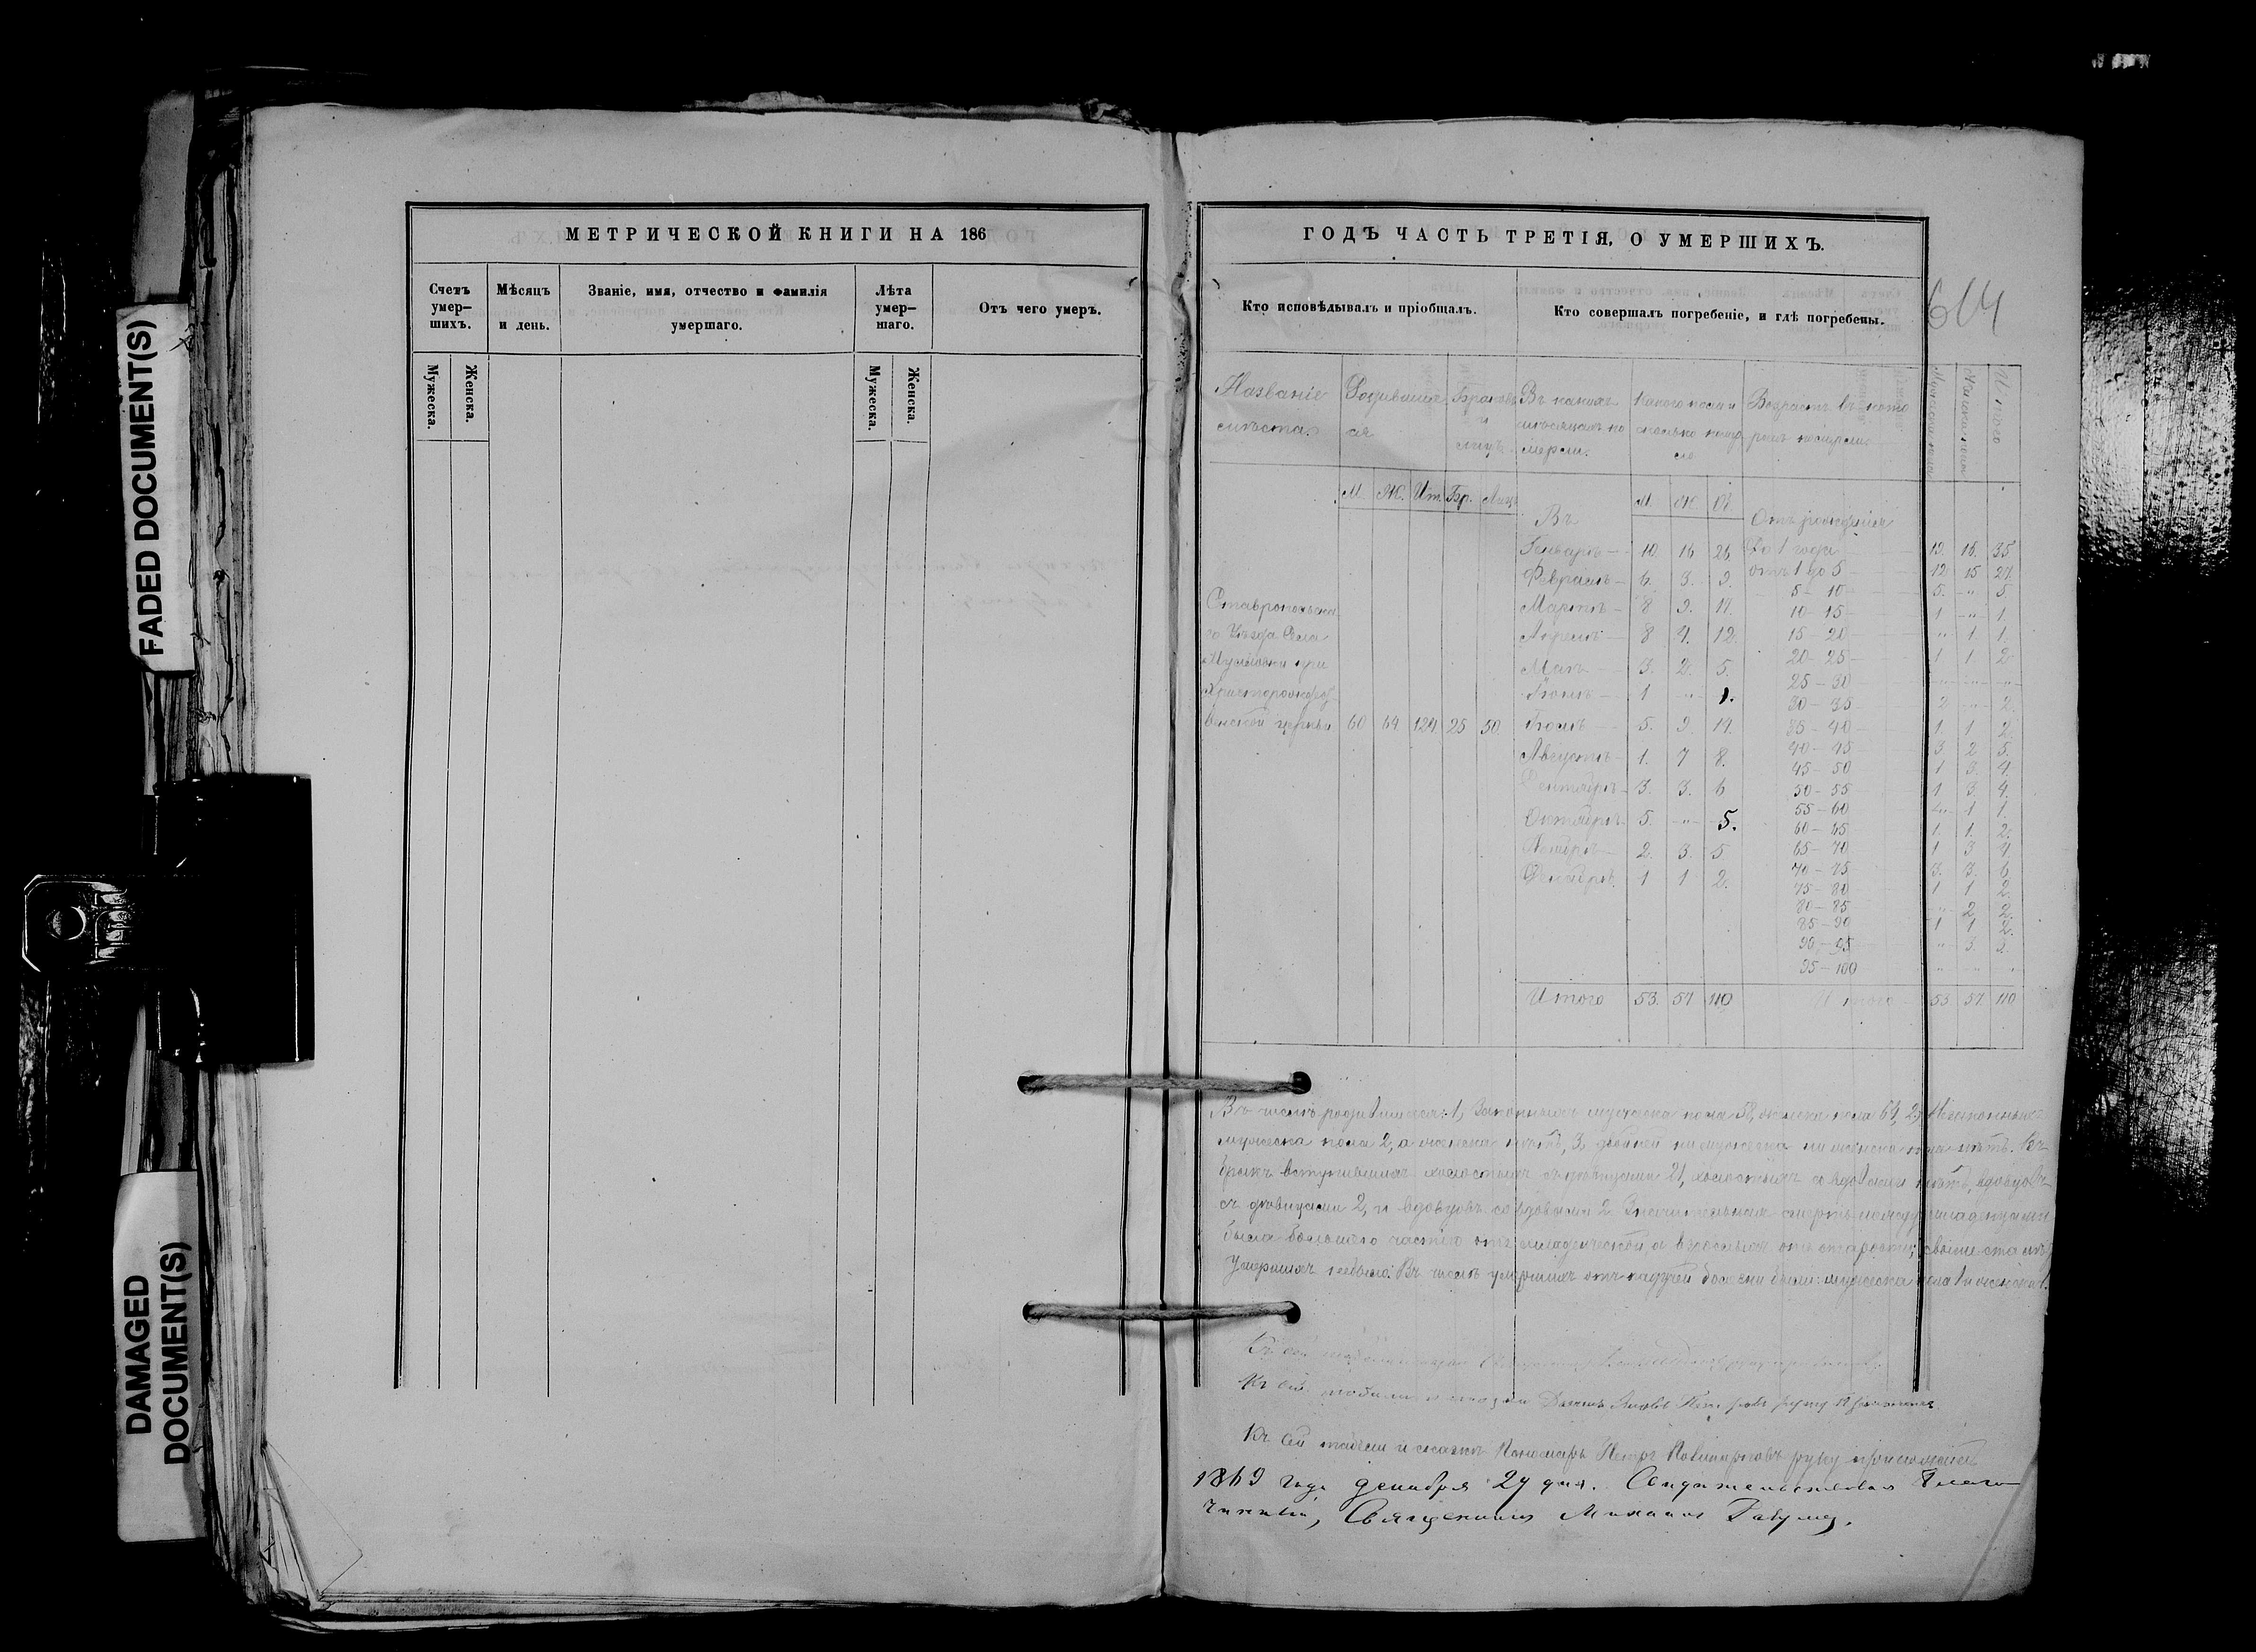 FADED DOCUMENT(S)
DAMAGED
DOCUMENT(S)
МЕТРИЧЕСКОЙ КНИГИ НА 186
Счетъ умер-шихъ.
Мѣсяцъ и день.
Званіе, имя, отчество и фамилія умершаго.
Лѣта умер-шаго.
Отъ чего умеръ.
Мужеска. Женска. Мужеска. Женска.
ГОДЪ ЧАСТЬ ТРЕТІЯ, О УМЕРШИХЪ.
Кто исповѣдывалъ и пріобщалъ.
Кто совершалъ погребеніе, и гдѣ погребены.
614
Названіе мѣста.
Родившіеся
Браковъ и лицъ.
Въ какихъ мѣсяцахъ померли.
Какого пола и сколько
Возрастъ въ которомъ померли
Итого
М. Ж. Ит. Бр. Лицъ М. Ж. Об.
Въ
Отъ рожденія
Генварѣ 10. 16 26 До 1 года 19. 16. 35
Февралѣ 6. 3. 9. отъ 1 до 5 12 15 27.
Мартѣ 8 9. 17. 5 - 10 5. " 5.
Апрелѣ 8 4. 12. 10 - 15 1 " 1.
Маѣ 3. 2. 5. 15 - 20 " 1 1.
Іюнѣ 1 " 1. 20 - 25 1 1. 2
Іюлѣ 5. 9. 14. 25 - 30 " " "
Августѣ 1. 7 8. 30 - 35 2 " 2.
Сентябрѣ 3. 3. 6 35 - 40 1. 1 2.
Октябрѣ 5. " 5. 40 - 45 3 2 5.
Ноябрѣ 2. 3. 5 45 - 50 1 3. 4.
Декабрѣ 1 1 2. 50 - 55 1 3 4.
55 - 60 " 1 1.
60 - 65 1. 1. 2.
65 - 70 1 3 4.
70 - 75 3. 3. 6
75 - 80 1 1 2
80 - 85 " 2 2.
85 - 90 1 1 2.
90 - 95 " 3. 3.
95 - 100 " " "
Ставропольска
го Уѣзда Села
при
Христорождес
венской церкви 60 64 124 25 50
Итого 53. 57 110 Итого 53 57 110
Въ числѣ родившихся: 1, Законныхъ мужеска пола 58, женска пола 64, 2, Незаконныхъ
мужеска пола 2, а женска нѣтъ, 3, двойней ни мужеска ни женска пола нѣтъ. Въ
бракъ вступившихъ холостыхъ съ дѣвицами 21, холостыхъ со вдовами нѣтъ, вдовцовъ
съ дѣвицами 2, и вдовцовъ со вдовами 2. Значительная смерть между младенцами
была большею частію отъ младенческой, а взрослыхъ отъ старости; свыше ста лѣтъ
умершихъ небыло. Въ числѣ умершихъ отъ падучей болезни были: мужеска пола 1 и женска 1.
Къ сей
Къ сей
Къ сей табели и Пономарь Петръ руку приложилъ
1869 года декабря 29 дня. Свидѣтельствовалъ Благо
чинный, Священникъ Михаилъ